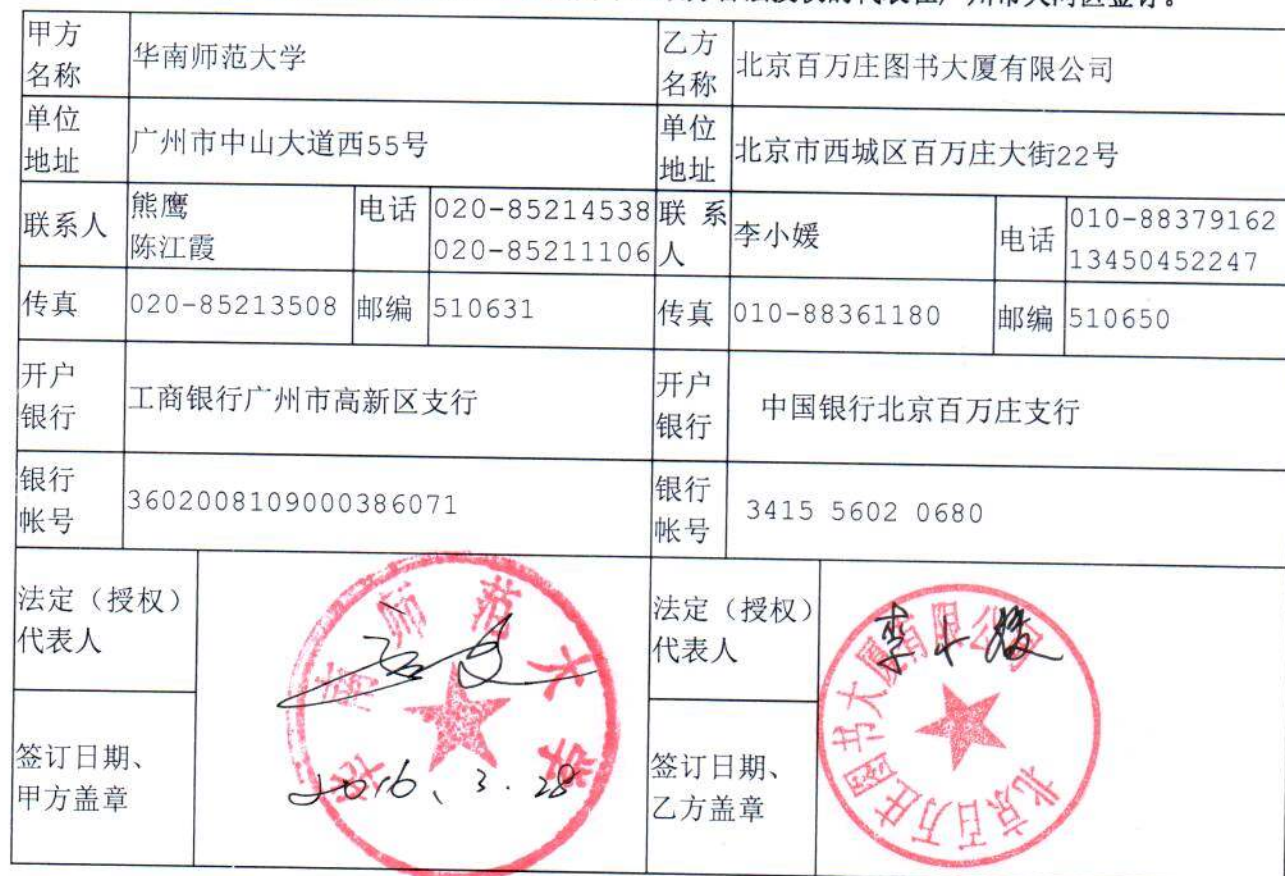 的代表在广州市天河区签订。
甲方
名称
华南师范大学
乙方
名称
北京百万庄图书大厦有限公司
单位
地址
广州市中山大道西55号
单位
地址
北京市西城区百万庄大街22号
联系人
熊鹰
陈江霞
电话
020-85214538
020-85211106
联 系
人
李小媛
电话
010-88379162
13450452247
传真
020-85213508
邮编
510631
传真
010-88361180
邮编
510650
开户
银行
工商银行广州市高新区支行
开户
银行
中国银行北京百万庄支行
银行
帐号
3602008109000386071
银行
帐号
3415 5602 0680
法定（授权）
代表人
华南师范大学
法定（授权）
代表人
李小媛
北京百万庄图书大厦有限公司
签订日期、
甲方盖章
2016、3.28
签订日期、
乙方盖章